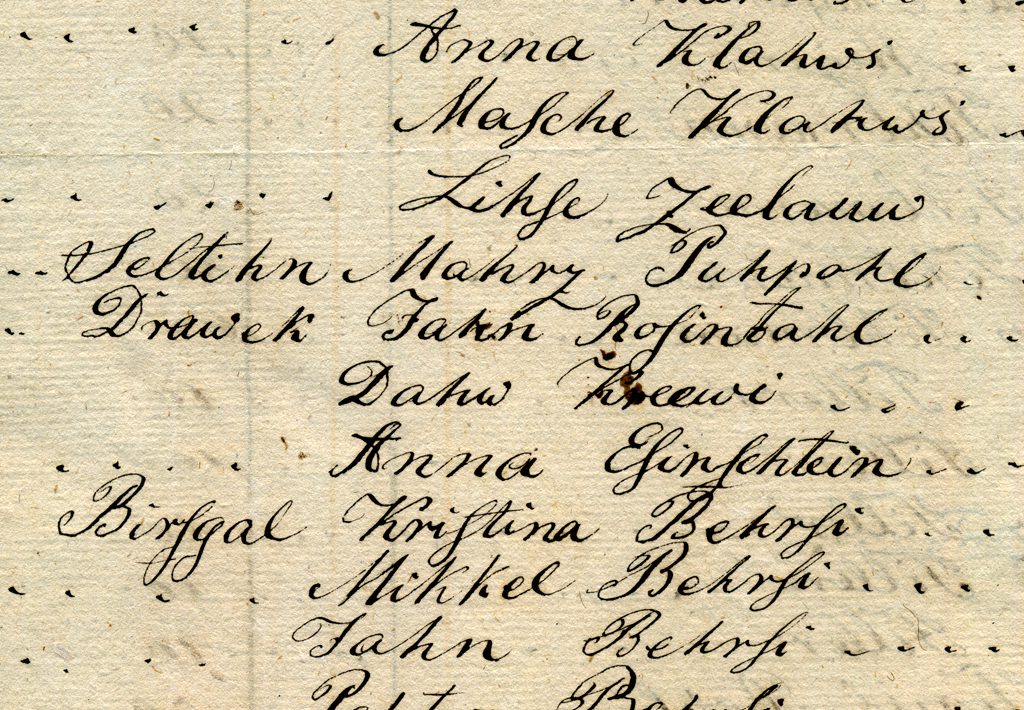 Anna Klahws
Maſche Klahws
Lihſe Zeelauw
Seltihn Mahrz Puhpohl
Drawek Jahn Roſintahl
Dahw Kreewi
Anna Eſinſchtein
Birſgal Kriſtina Behrſi
Mikkel Behrſi
Jahn Behrſi